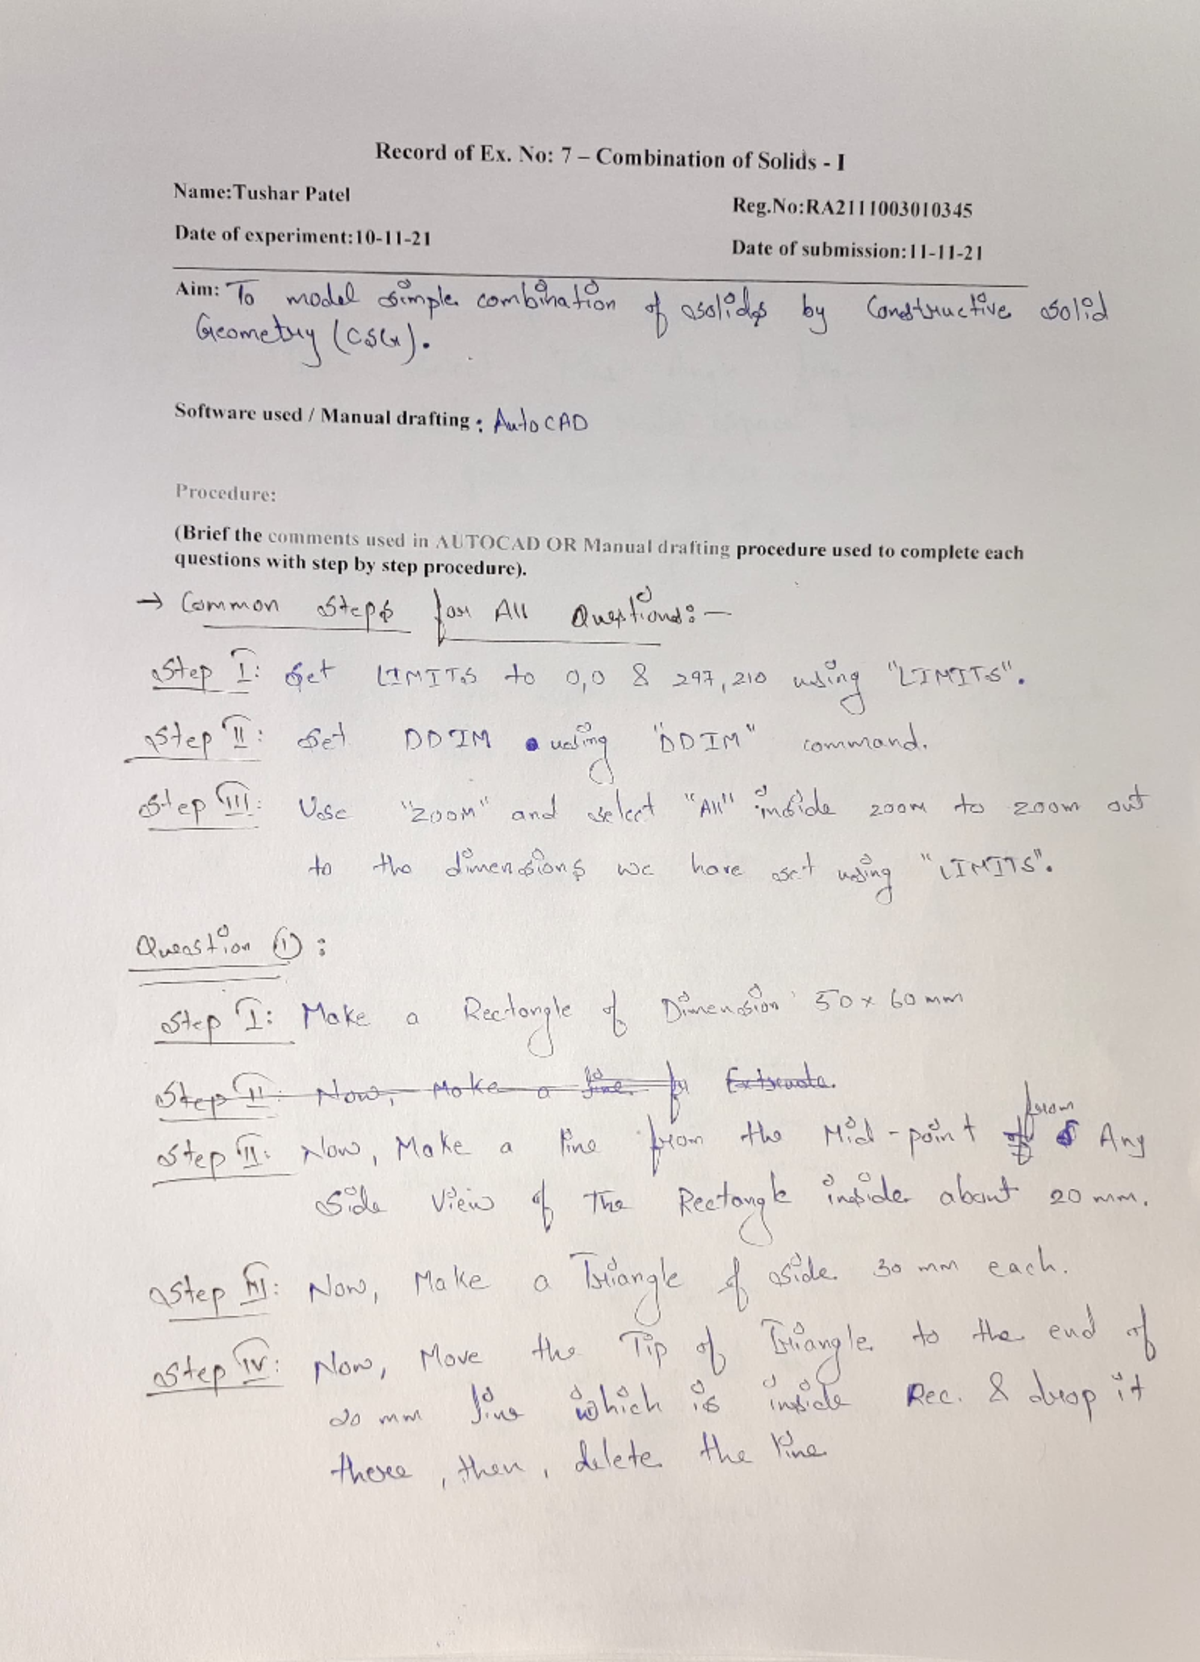 Record of Ex. No: 7 – Combination of Solids - I
Name:Tushar Patel
Reg.No:RA2111003010345
Date of experiment:10-11-21
Date of submission:11-11-21
Aim: To model simple combination of solids by Constructive solid
Geometry (CSG).
Software used / Manual drafting : AutoCAD
Procedure:
(Brief the comments used in AUTOCAD OR Manual drafting procedure used to complete each
questions with step by step procedure).
→ Common Steps for All Questions:—
Step I: Set LIMITS to 0,0 & 297,210 using "LIMITS".
Step II: Set DDIM using "DDIM" command.
Step III: Use "ZOOM" and select "All" inside zoom to zoom out
to the dimensions we have set using "LIMITS".
Question ①:
Step I: Make a Rectangle of Dimension 50 x 60 mm
Step II: Now, Make a line for Extrude.
Step II: Now, Make a line from the Mid-point of from Any
Side View of The Rectangle inside about 20 mm.
Step III: Now, Make a Triangle of side 30 mm each.
Step IV: Now, Move the Tip of Triangle to the end of
20 mm line which is inside Rec. & drop it
there, then, delete the line